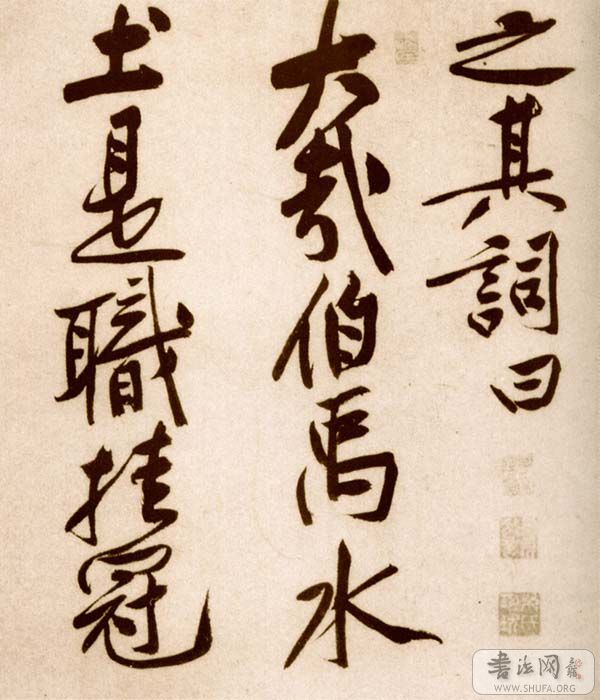 之其詞曰
大哉伯禹水
土是職挂冠
書法网
WWW.SHUFA.ORG